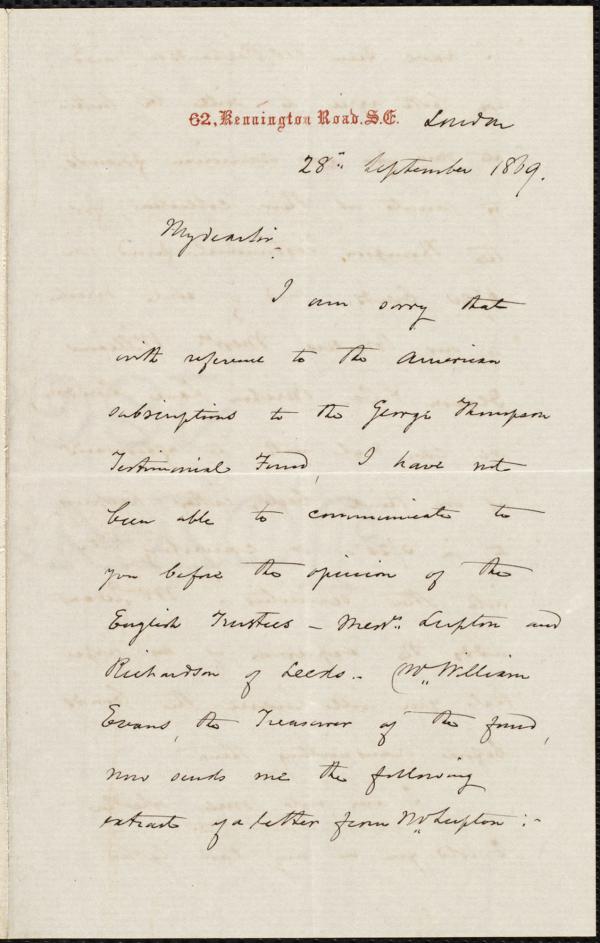 62, Kennington Road. S.E. London
28th September 1869.
My dear Sir,
I am sorry that
with reference to the American
subscriptions to the George Thompson
Testimonial Fund, I have not
been able to communicate to
you before the opinion of the
English Trustees – Messrs. Lupton and
Richardson of Leeds. – (Mr. William
Evans, the Treasurer of the fund,
now sends me the following
extract of a letter from Mr. Lupton :–